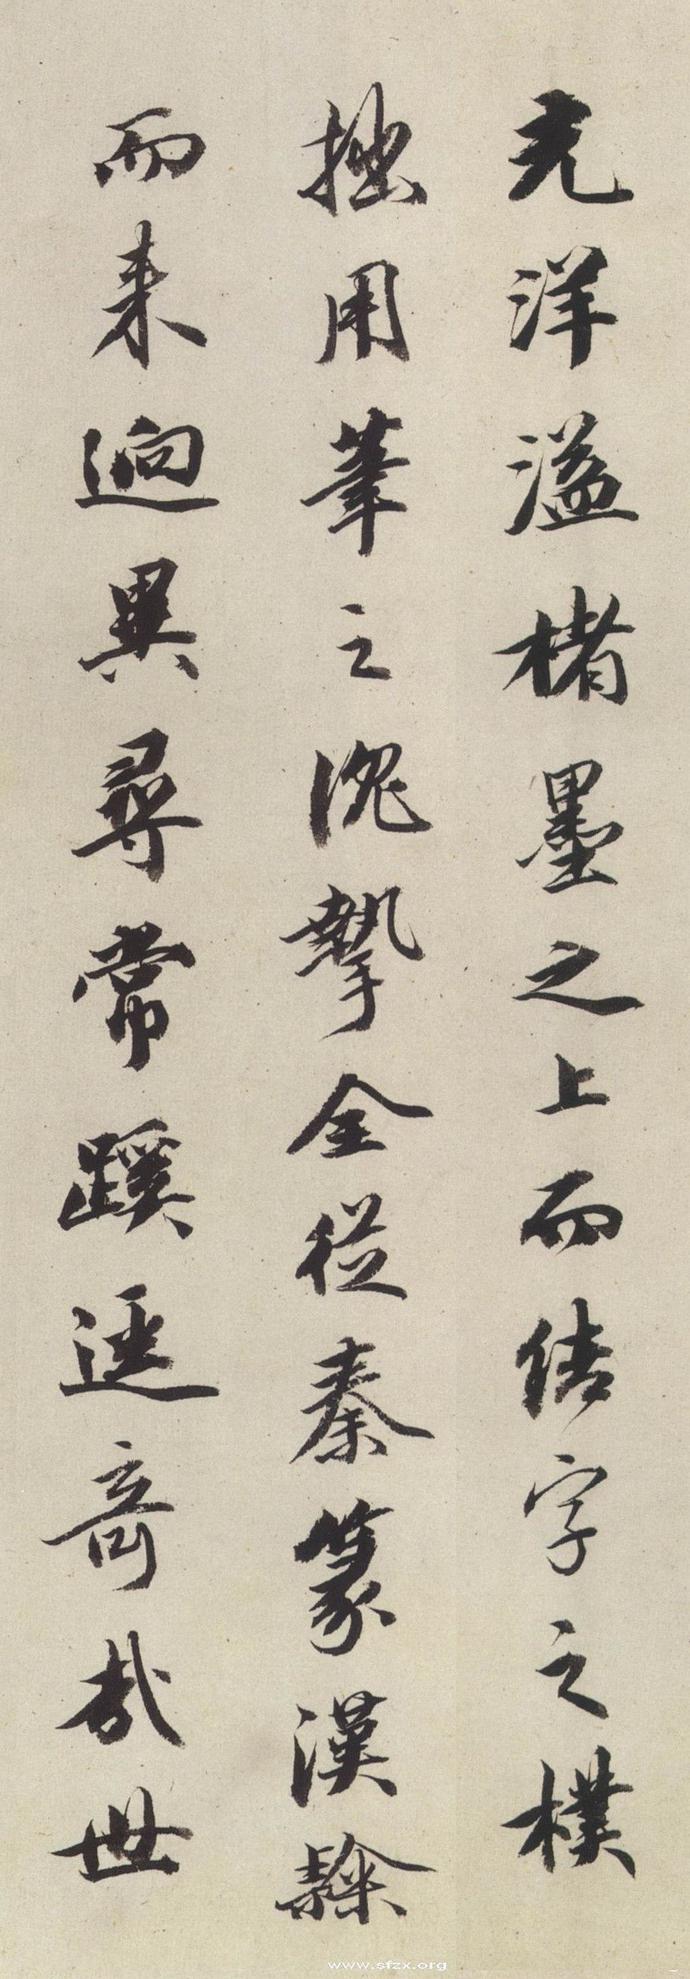 充洋溢楮墨之上而结字之樸
拙用筆之沉摯全從秦篆漢隸
而来迥異尋常蹊逕奇哉世
www.sfzx.org